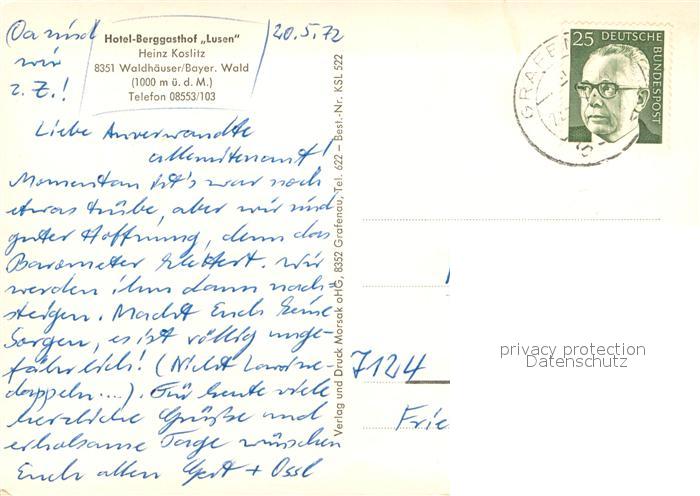 Da sind
wir
z. Z.!
20.5.72
Hotel-Berggasthof „Lusen"
Heinz Koslitz
8351 Waldhäuser/Bayer. Wald
(1000 m ü. d. M.)
Telefon 08553/103
Liebe Anverwandte
allemitenant!
Momentan ist's zwar noch
etwas trübe, aber wir sind
guter Hoffnung, denn das
Barometer klettert. Wir
werden ihm dann nach-
steigen. Macht Euch keine
Sorgen, es ist völlig unge-
fährlich! (Nicht Lawine-
dappeln...). Für heute viele
herzliche Grüße und
erholsame Tage wünschen
Euch allen Gert + Ossl
Verlag und Druck Morsak oHG, 8352 Grafenau, Tel. 622 – Best.-Nr. KSL 522
25 DEUTSCHE
BUNDESPOST
GRAFEN
7124
Frie
privacy protection
Datenschutz